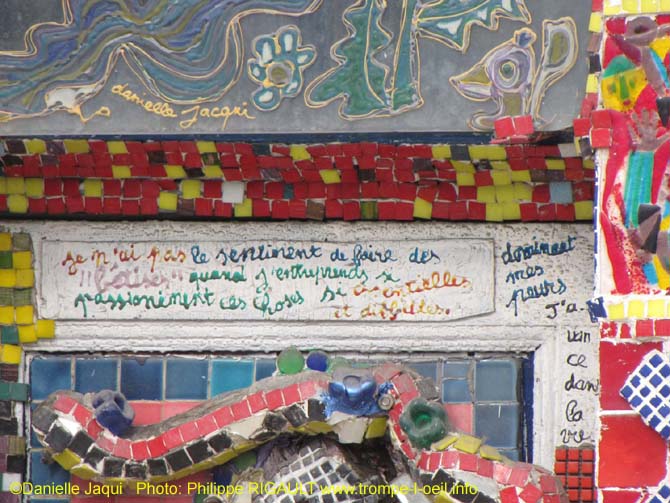 danielle jacqui
je n'ai pas le sentiment de faire des
"bêtises" quand j'entreprends si
passionément ces choses si essentielles
et difficiles.
dominent
mes
peurs
J'a-
van
ce
dans
la
vie
©Danielle Jaqui Photo: Philippe RIGAULT www.trompe-l-oeil.info